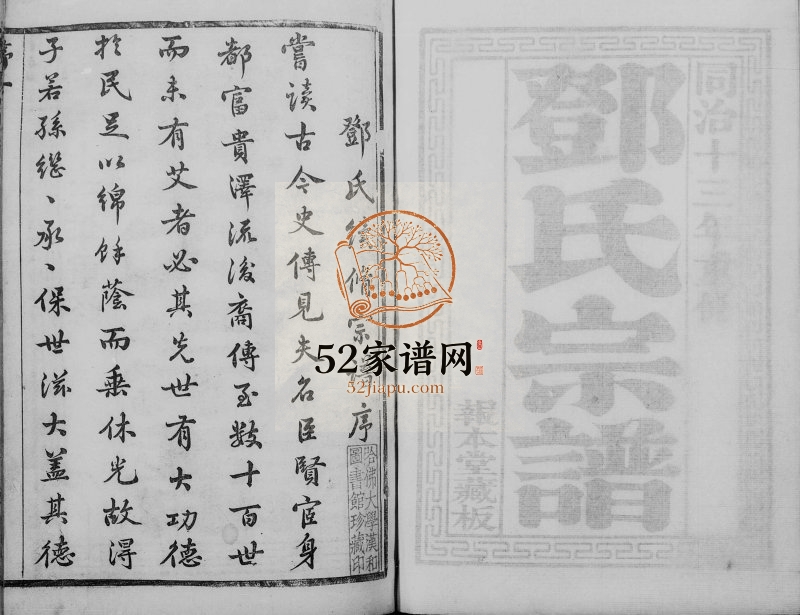 同治十三年
鄧氏宗譜
報本堂藏板
鄧氏續修宗譜序
嘗讀古今史傳見夫名臣賢宦身
都富貴澤流後裔傳至數十百世
而未有艾者必其先世有大功德
於民足以綿餘蔭而垂休光故得
子若孫繼〻承〻保世滋大蓋其德
哈佛大學漢和
圖書館珍藏印
52家谱网
52jiapu.com